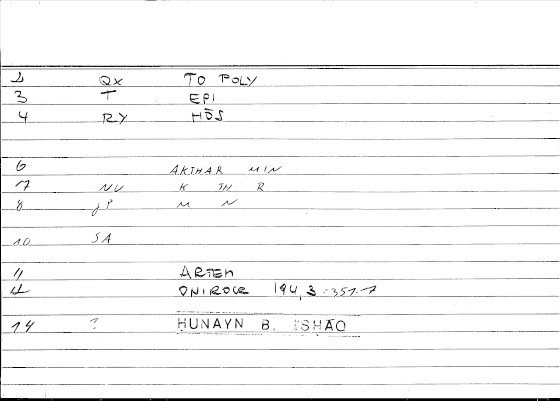 2 QX TO POLY
3 T EPI
4 RY HŌS
6 AKTHAR MIN
7 NU K TH R
8 JP M N
10 SA
11 ARTEM
12 ONIROCR 194,3-351.7
14 ? ḤUNAYN B. ISḤĀQ